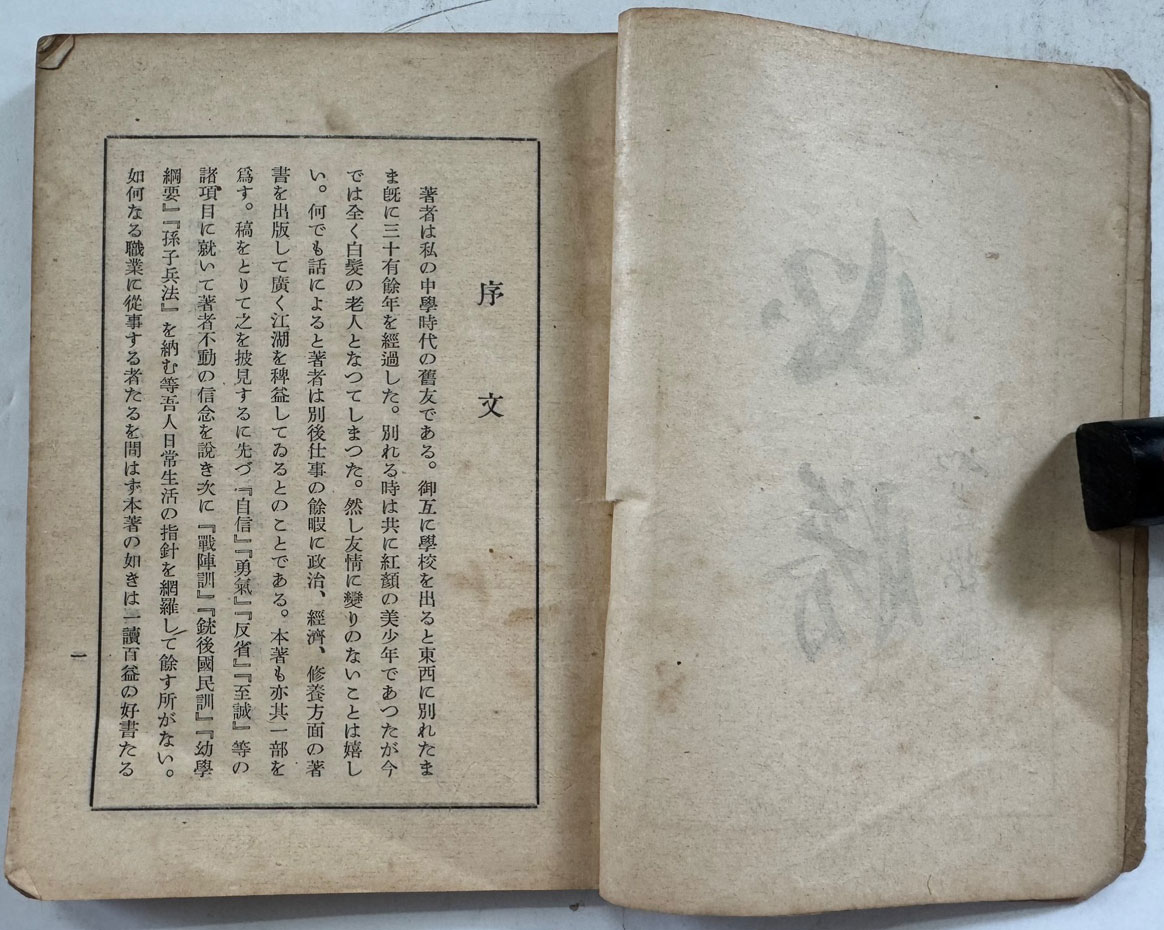 序文
著者は私の中學時代の舊友である。御互に學校を出ると東西に別れたま
ま旣に三十有餘年を經過した。別れる時は共に紅顏の美少年であつたが今
では全く白髮の老人となつてしまつた。然し友情に變りのないことは嬉し
い。何でも話によると著者は別後仕事の餘暇に政治、經濟、修養方面の著
書を出版して廣く江湖を稗益してゐるとのことである。本著も亦其一部を
爲す。稿をとりて之を披見するに先づ『自信』『勇氣』『反省』『至誠』等の
諸項目に就いて著者不動の信念を說き次に『戰陣訓』『銃後國民訓』『幼學
綱要』『孫子兵法』を納む等吾人日常生活の指針を網羅して餘す所がない。
如何なる職業に從事する者たるを問はず本著の如きは一讀百益の好書たる
一